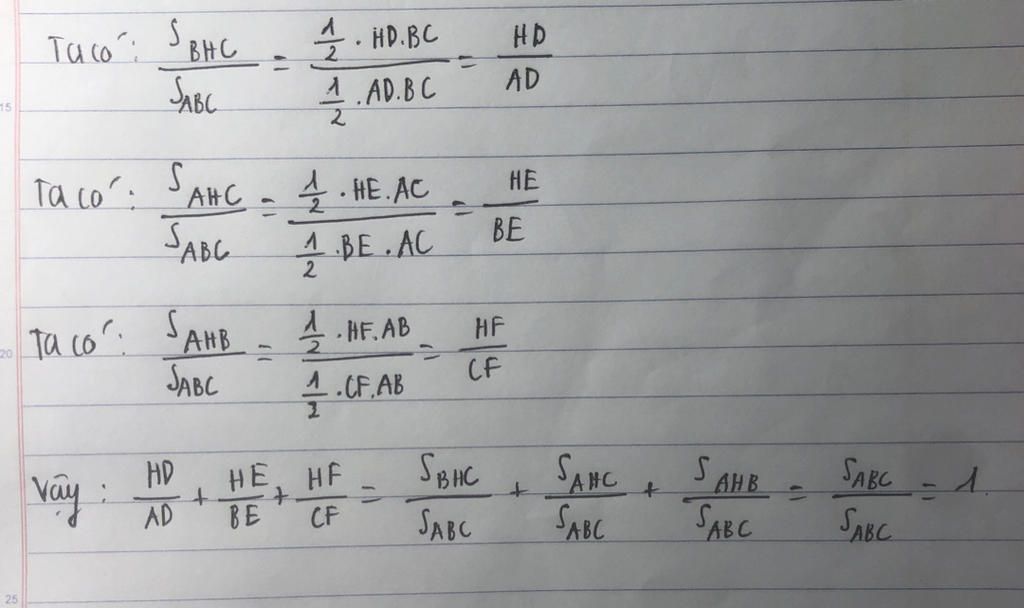 Ta có: S_BHC / S_ABC = (1/2 . HD.BC) / (1/2 .AD.BC) = HD / AD
15
Ta có: S_AHC / S_ABC = (1/2 . HE.AC) / (1/2 .BE.AC) = HE / BE
20
Ta có: S_AHB / S_ABC = (1/2 . HF.AB) / (1/2 .CF.AB) = HF / CF
Vậy: HD / AD + HE / BE + HF / CF = S_BHC / S_ABC + S_AHC / S_ABC + S_AHB / S_ABC = S_ABC / S_ABC = 1.
25